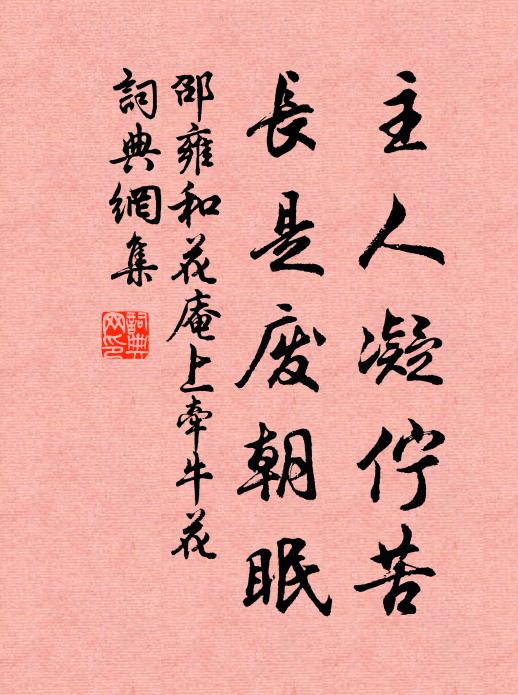 主人凝佇苦
長是废朝眠
邵雍和花庵上牽牛花
詞典網集
詞典网印